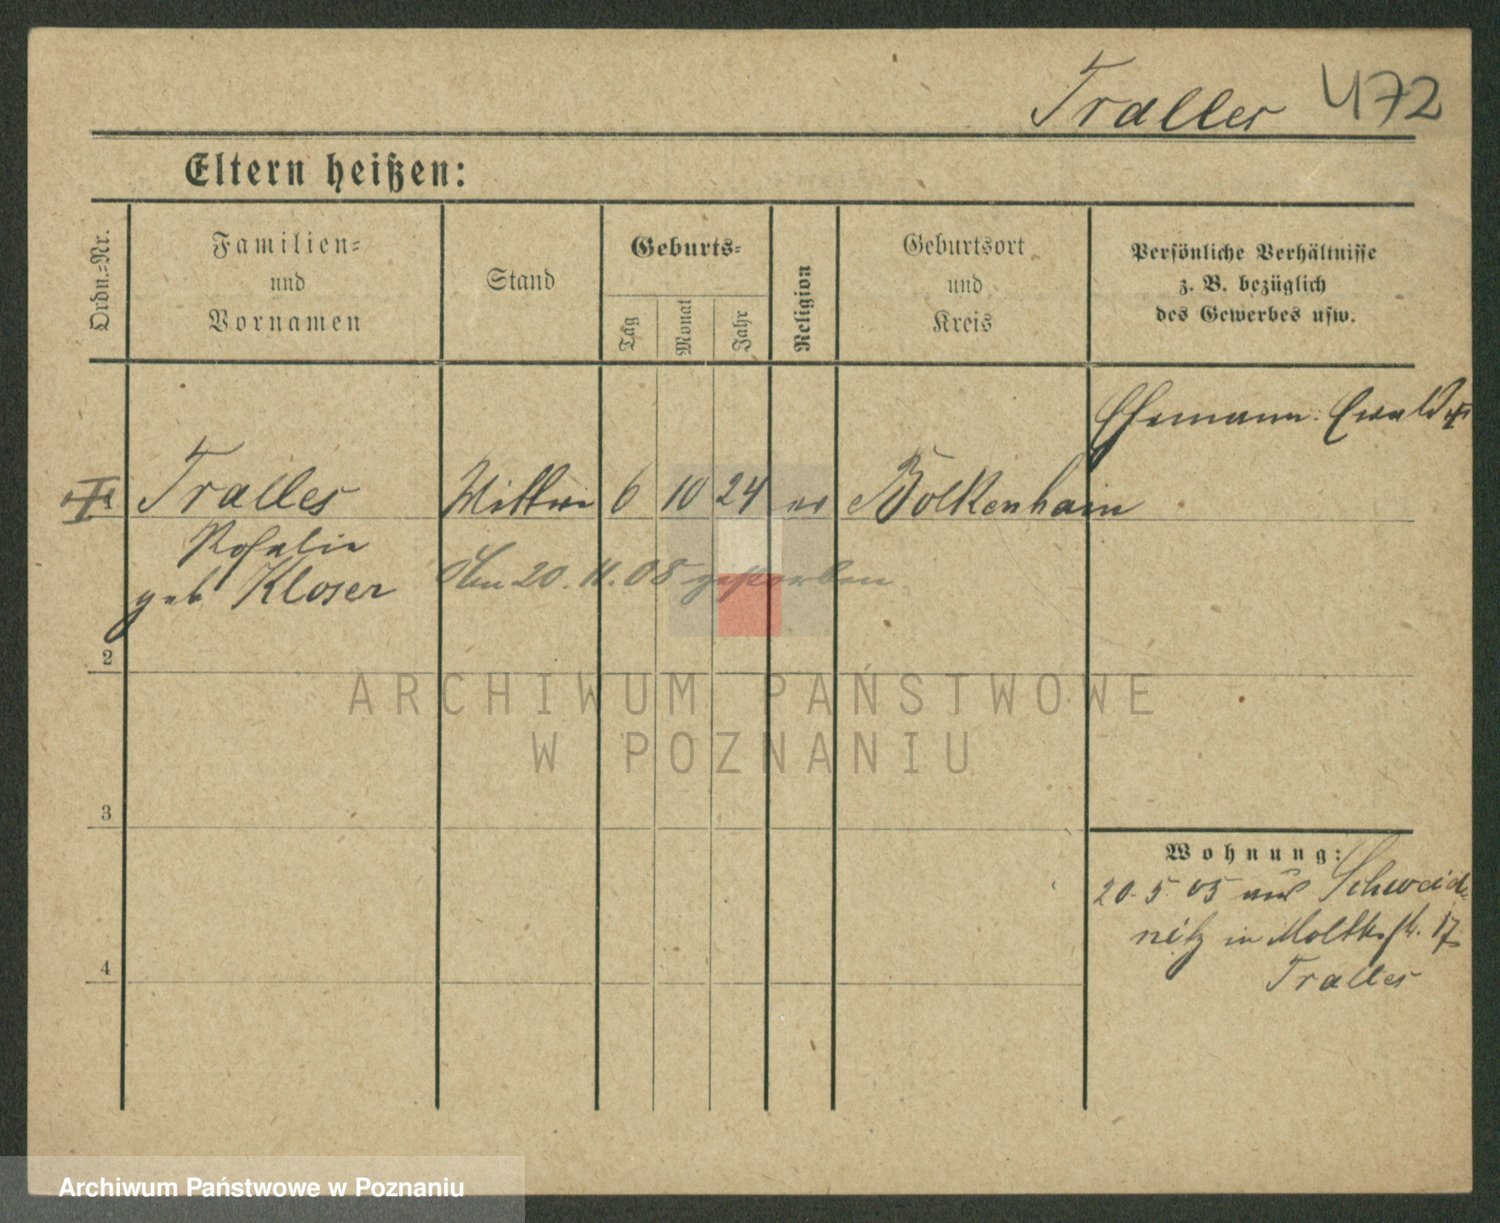 Tralles 472
Eltern heißen:
Ordn.-Nr.
Familien-
und
Vornamen
Stand
Geburts-
Tag
Monat
Jahr
Religion
Geburtsort
und
Kreis
Persönliche Verhältnisse
z. B. bezüglich
des Gewerbes usw.
Ehemann: Ewald
Tralles Witwe 6 10 24 ev Bolkenhain
Rosalie
geb Kloser
Am 20. 11. 08 gestorben
2
3
4
Wohnung:
20. 5 05 aus Schweid-
nitz in Moltkestr. 17
Tralles
ARCHIWUM PAŃSTWOWE
W POZNANIU
Archiwum Państwowe w Poznaniu